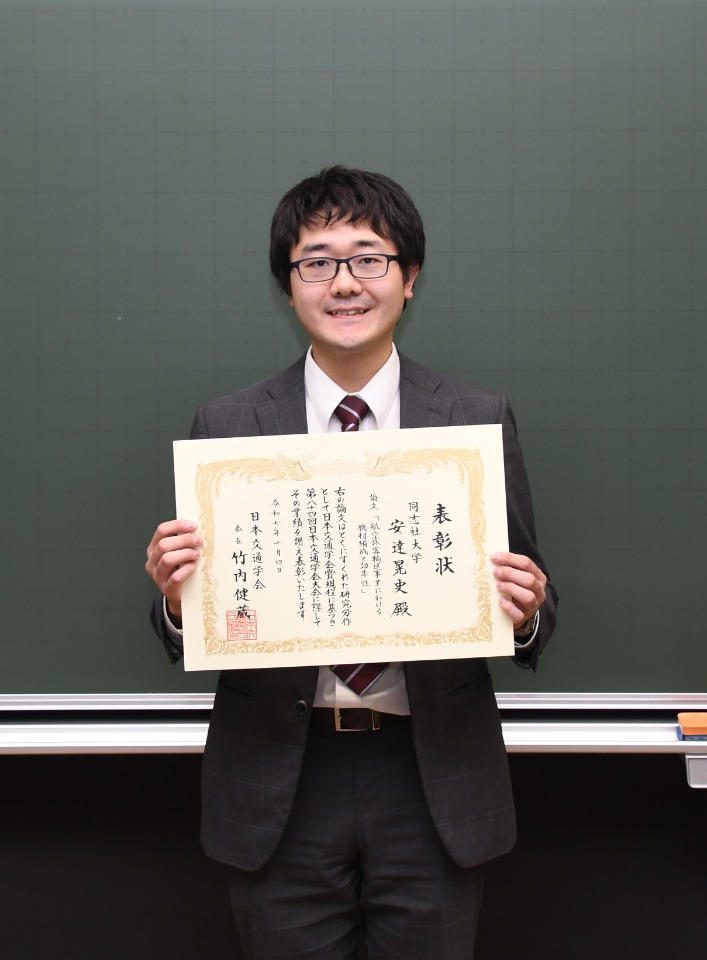 表彰状
同志社大学
安達晃史殿
論文「航空旅客輸送事業における
機材編成と効率性」
右の論文はとくにすぐれた研究労作
として日本交通学会賞規程に基づき
第八十四回日本交通学会大会に際して
その業績を讃え表彰いたします
令和七年十月四日
日本交通学会
会長 竹内健蔵